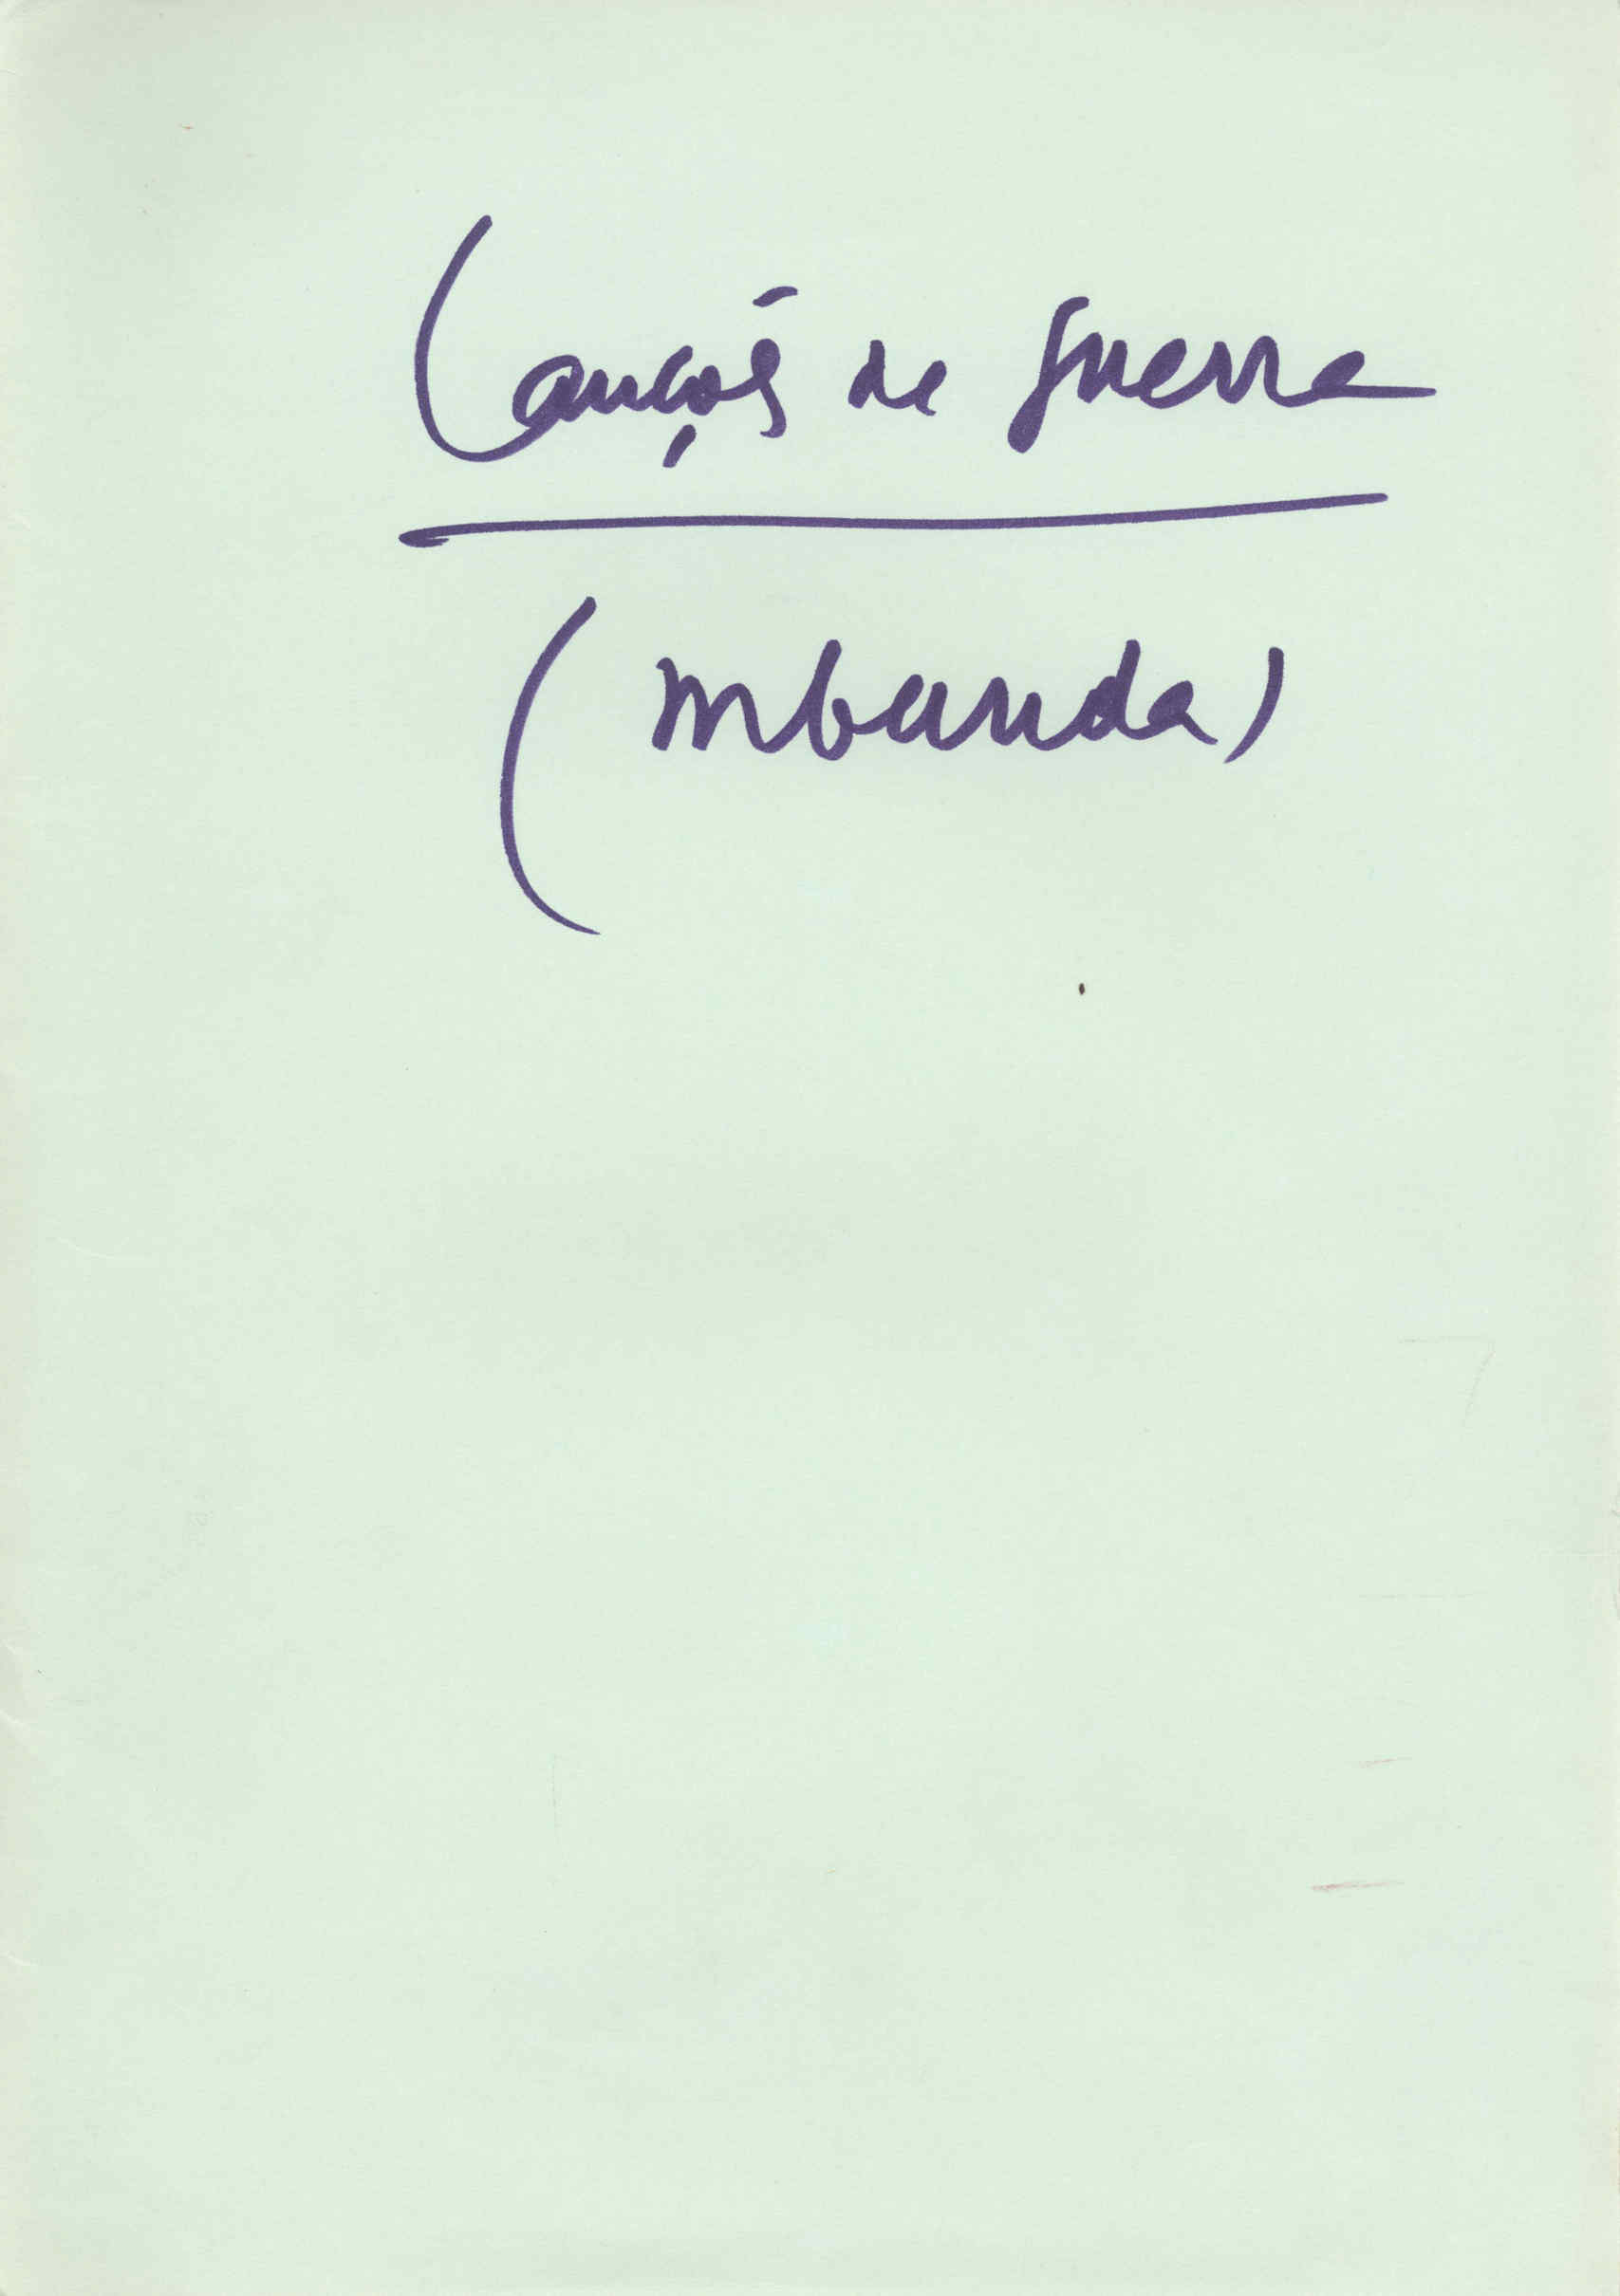 Canções de guerra
(mbunda)